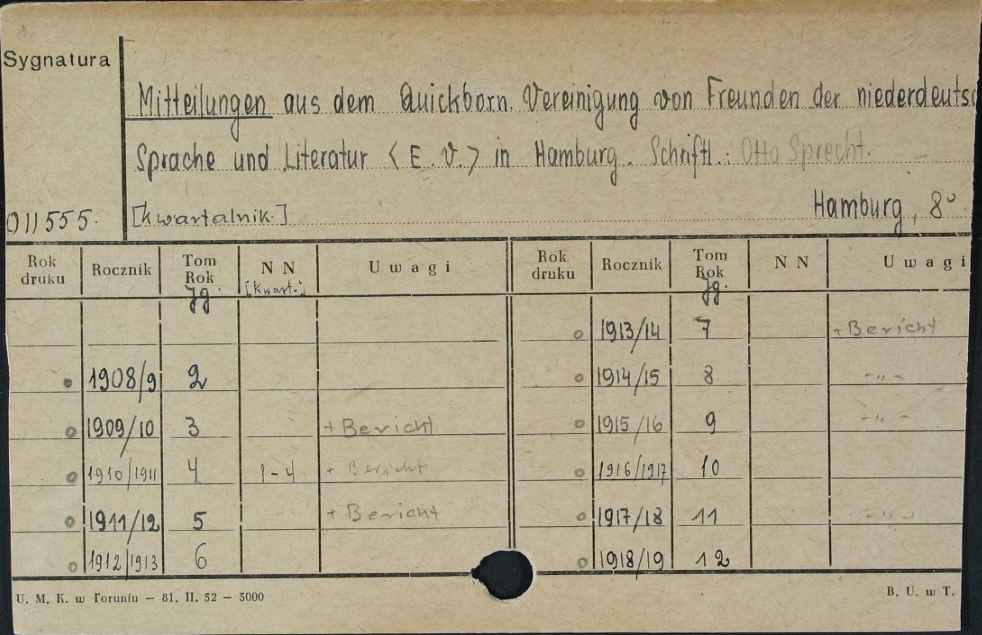 Sygnatura
Mitteilungen aus dem Quickborn. Vereinigung von Freunden der niederdeutsc
Sprache und Literatur <E. V.> in Hamburg. Schriftl.: Otto Specht.
011555. [kwartalnik] Hamburg, 8°
Rok druku Rocznik Tom Rok Jg. N N [kwart.] Uwagi Rok druku Rocznik Tom Rok Jg. N N Uwagi
1913/14 7 + Bericht
1908/9 2 1914/15 8 -"-
1909/10 3 + Bericht 1915/16 9 -"-
1910/1911 4 1-4 + Bericht 1916/1917 10
1911/12 5 + Bericht 1917/18 11 -"-
1912/1913 6 1918/19 12
U. M. K. w Toruniu — 81. II. 52 — 5000 B. U. w T.